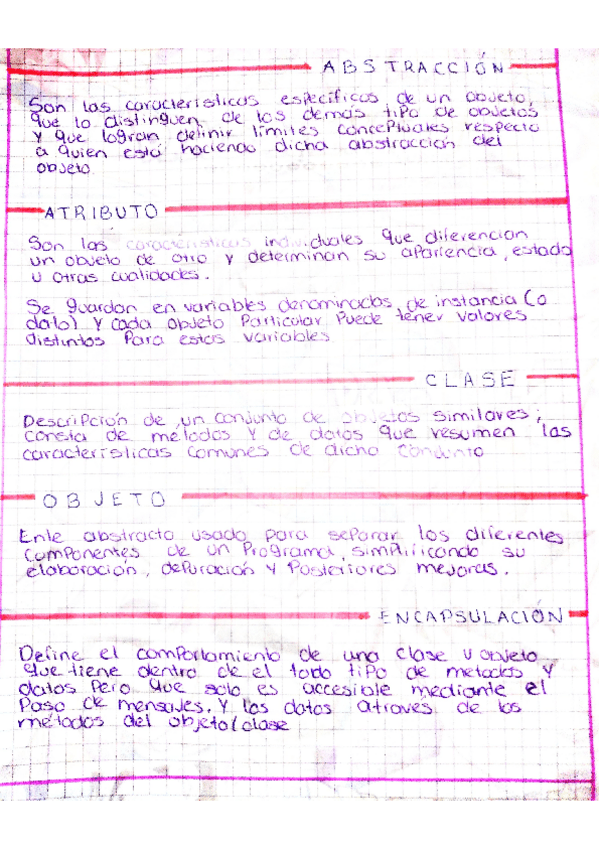 ABSTRACCIÓN
Son las características específicas de un objeto,
que lo distinguen de los demás tipo de objetos
y que logran definir límites conceptuales respecto
a quien está haciendo dicha abstracción del
objeto
ATRIBUTO
Son las características individuales que diferencian
un objeto de otro y determinan su apariencia, estado
u otras cualidades.
Se guardan en variables denominadas de instancia (o
dato) y cada objeto particular puede tener valores
distintos para estas variables
CLASE
Descripción de un conjunto de objetos similares,
consta de metodos y de datos que resumen las
características comunes de dicho conjunto
OBJETO
Ente abstracto usado para separar los diferentes
componentes de un programa, simplificando su
elaboración, depuración y posteriores mejoras.
ENCAPSULACIÓN
Define el comportamiento de una clase u objeto
que tiene dentro de el todo tipo de metodos y
datos pero que solo es accesible mediante el
paso de mensajes. y los datos atraves de los
métodos del objeto/clase